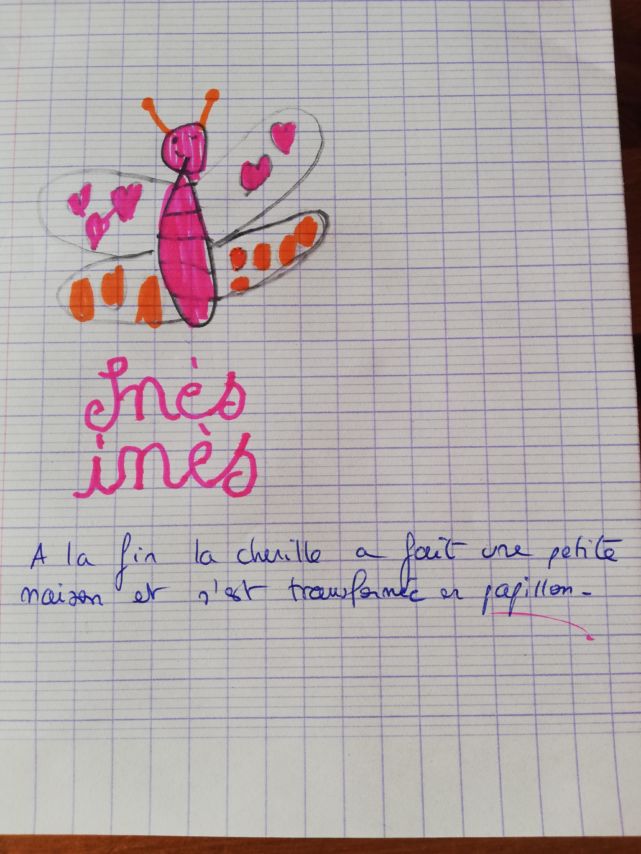 Inès
inès
A la fin la chenille a fait une petite
maison et s'est transformée en papillon.